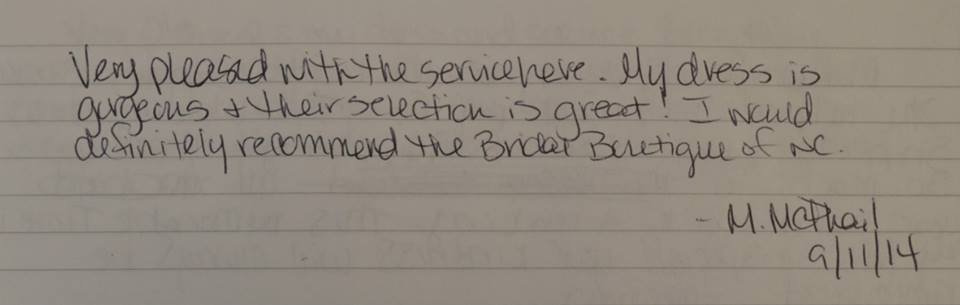 Very pleased with the service here. My dress is
gurgeous + their selection is great! I would
definitely recommend the Bridal Boutique of NC.
- M. McPhail
9/11/14